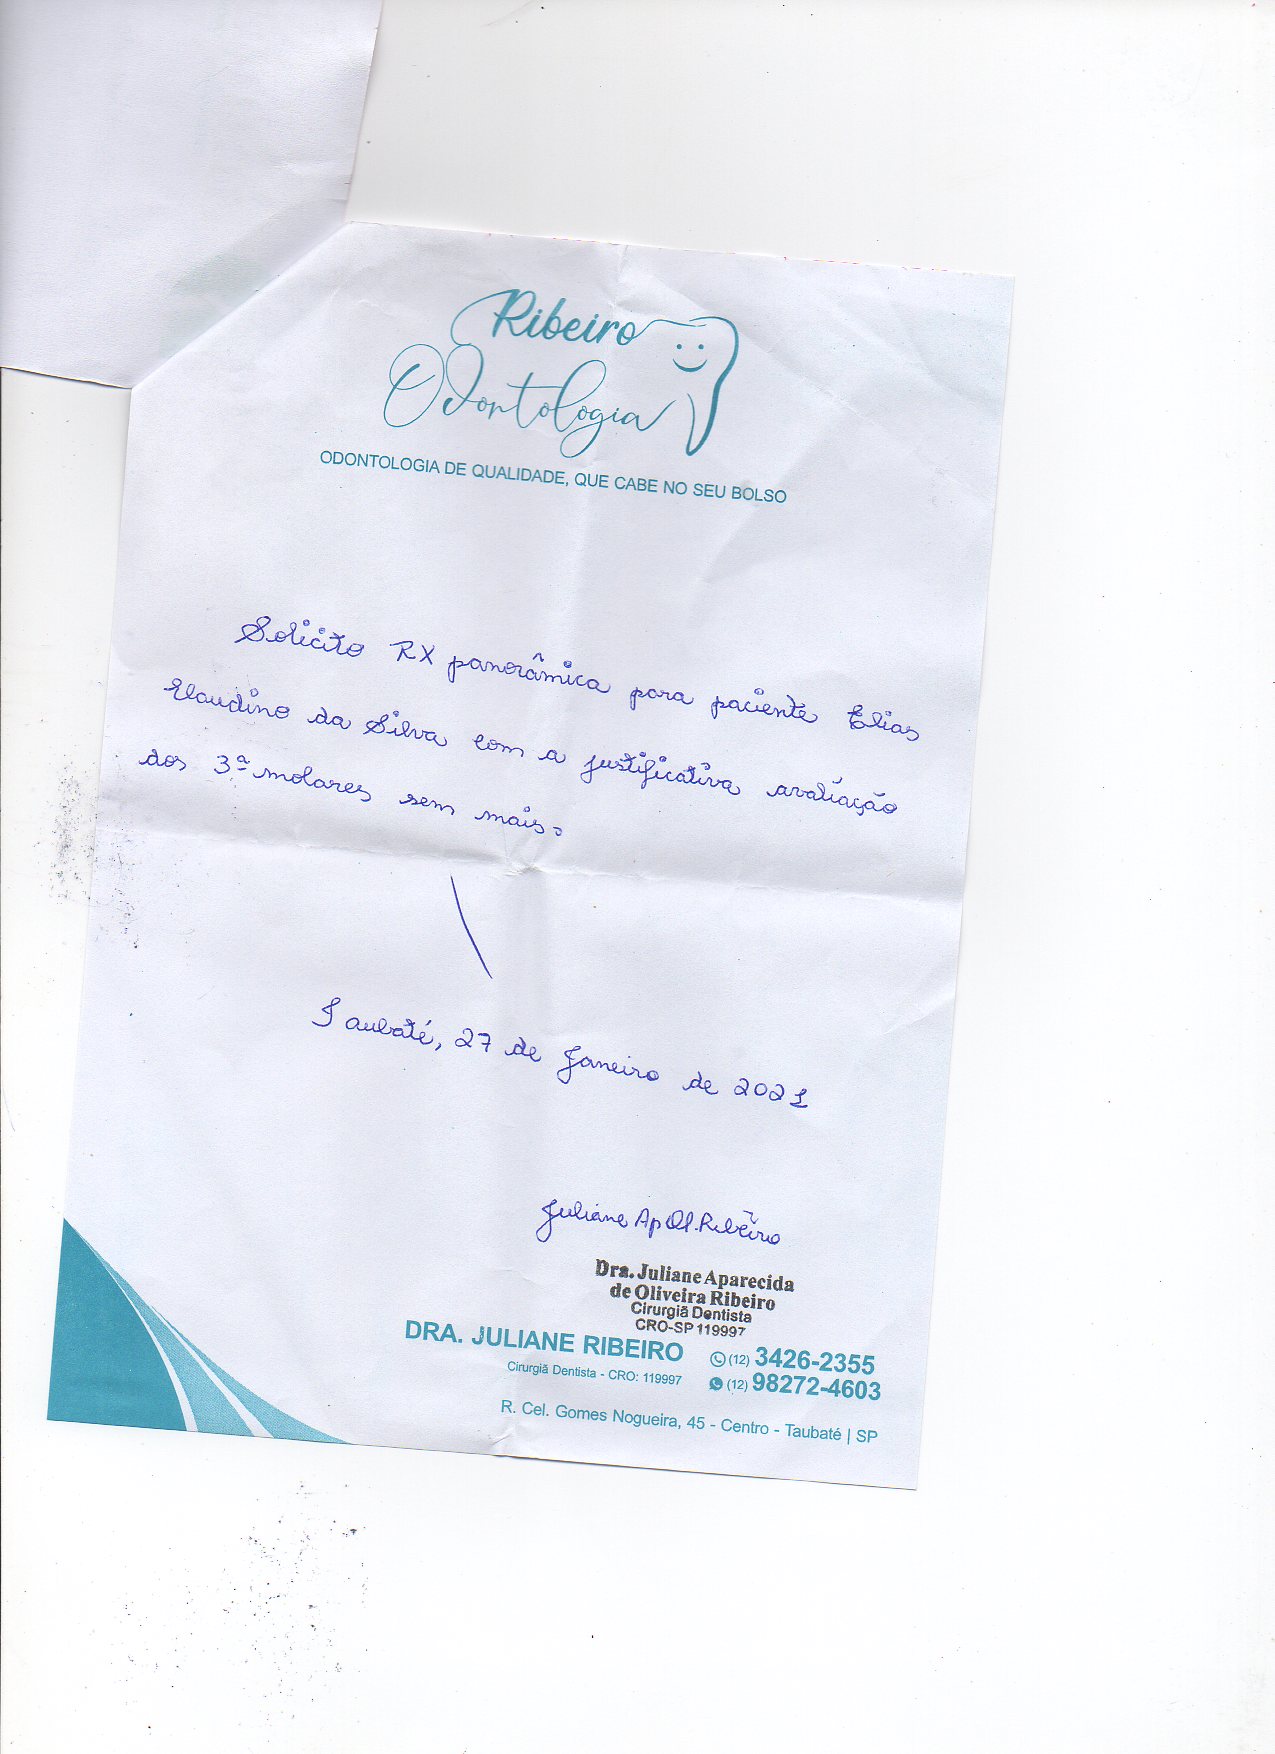 Ribeiro
Odontologia
ODONTOLOGIA DE QUALIDADE, QUE CABE NO SEU BOLSO
Solicito RX panorâmica para paciente Elias
Claudino da Silva com a justificativa avaliação
dos 3ª molares sem mais.
Taubaté, 27 de Janeiro de 2021
Juliane Ap Ol. Ribeiro
Dra. Juliane Aparecida
de Oliveira Ribeiro
Cirurgiã Dentista
CRO-SP 119997
DRA. JULIANE RIBEIRO
Cirurgiã Dentista - CRO: 119997
(12) 3426-2355
(12) 98272-4603
R. Cel. Gomes Nogueira, 45 - Centro - Taubaté | SP